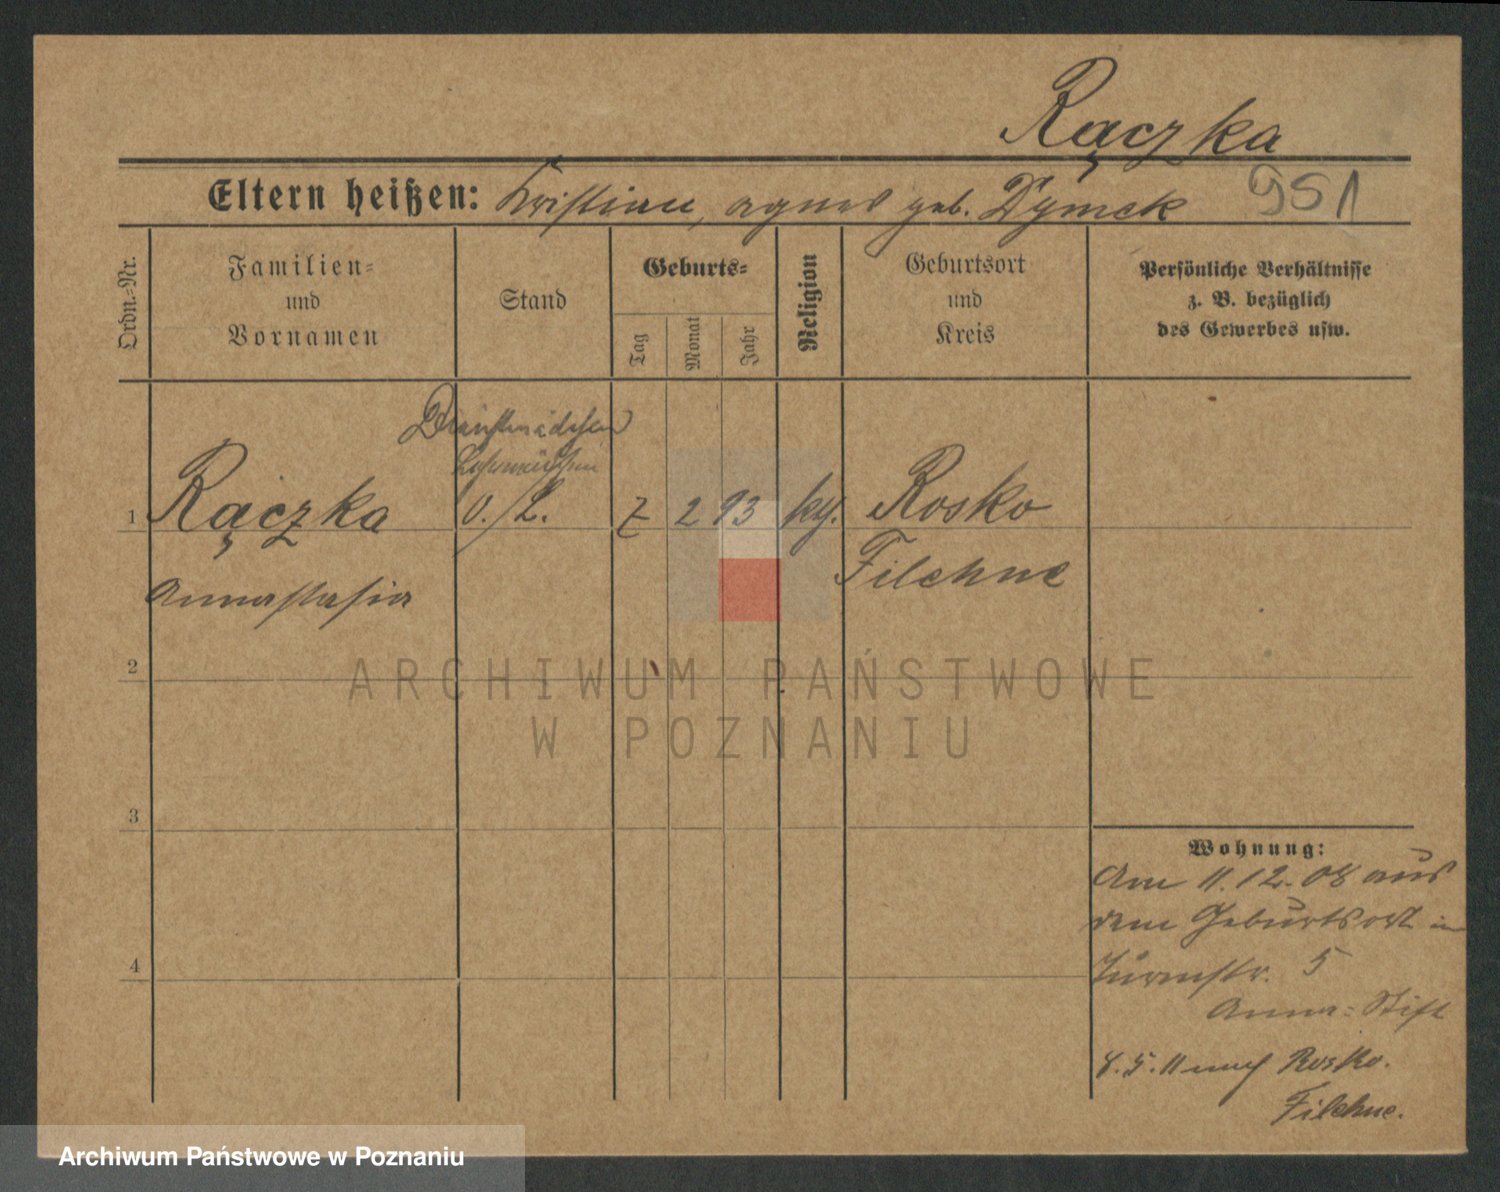 Rączka
Eltern heißen: Kristian, Agnes geb. Dymek
951
Ordn.-Nr.
Familien-
und
Vornamen
Stand
Geburts-
Tag
Monat
Jahr
Religion
Geburtsort
und
Kreis
Persönliche Verhältnisse
z. B. bezüglich
des Gewerbes usw.
Dienstmädchen
1 Rączka
Annastasia
O./L.
7 2 93 kg. Rosko
Filehne
2
3
4
Wohnung:
Am 11.12.08 aus
dem Geburtsort in
Turmstr. 5
Anna-Stift
8.5.11 nach Rosko.
Filehne.
ARCHIWUM PAŃSTWOWE
W POZNANIU
Archiwum Państwowe w Poznaniu